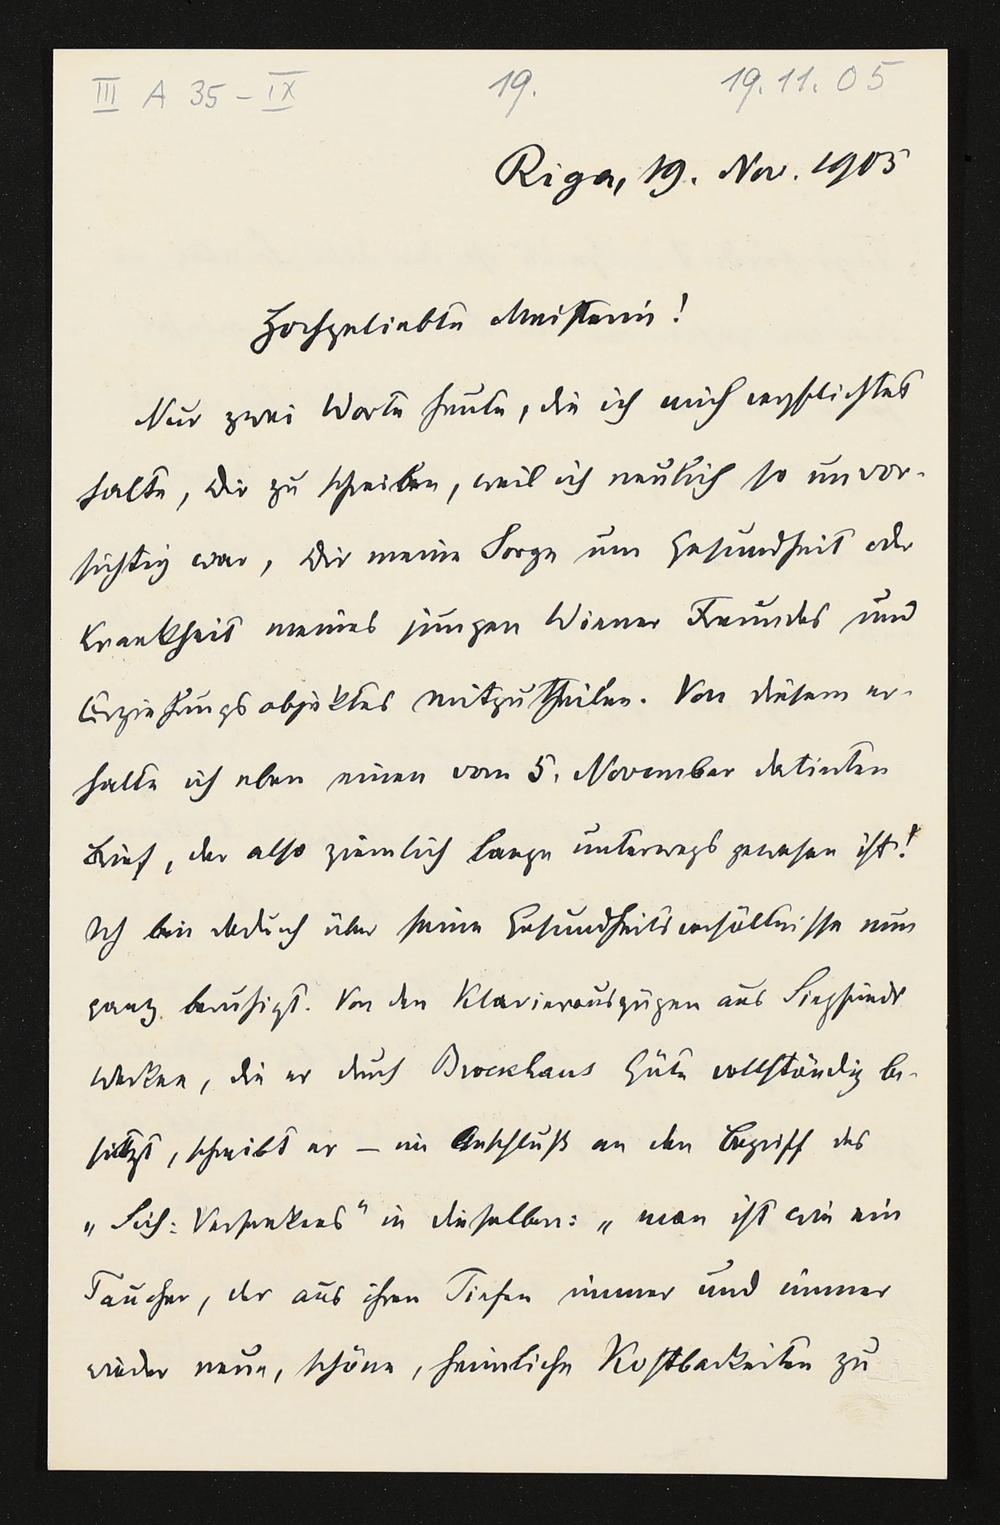 III A 35 – IX 19. 19.11.05
Riga, 19. Nov. 1905
Hochgeliebte Meisterin!
Nur zwei Worte heute, die ich mich verpflichtet
halte, Dir zu schreiben, weil ich neulich so unvor-
sichtig war, Dir meine Sorge um Gesundheit oder
Krankheit meines jungen Wiener Freundes und
Erziehungsobjektes mitzutheilen. Von diesem er-
halte ich eben einen vom 5. November datirten
Brief, der also ziemlich lange unterwegs gewesen ist!
Ich bin dadurch über seine Gesundheitsverhältnisse nun
ganz beruhigt. Von den Klavierauszügen aus Siegfrieds
Werken, die er durch Brockhaus Güte vollständig be-
sitzt, schreibt er – im Anschluß an den Begriff des
„Sich-Versenkens" in dieselben: „man ist wie ein
Taucher, der aus ihren Tiefen immer und immer
wieder neue, schöne, heimliche Kostbarkeiten zu